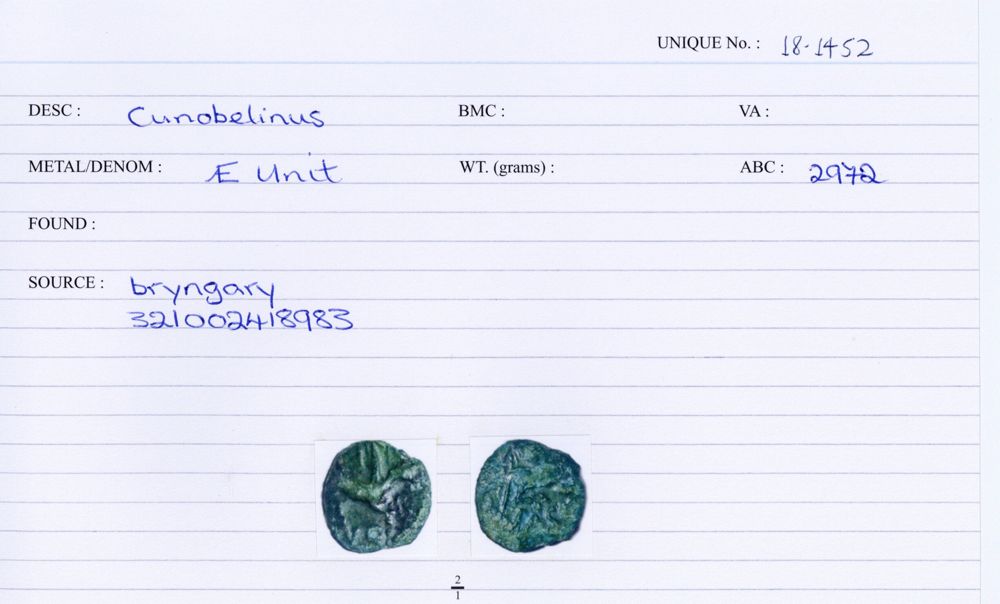 UNIQUE No. : 18-1452
DESC : Cunobelinus BMC : VA :
METAL/DENOM : Æ Unit WT. (grams) : ABC : 2972
FOUND :
SOURCE : bryngary
321002418983
2
1